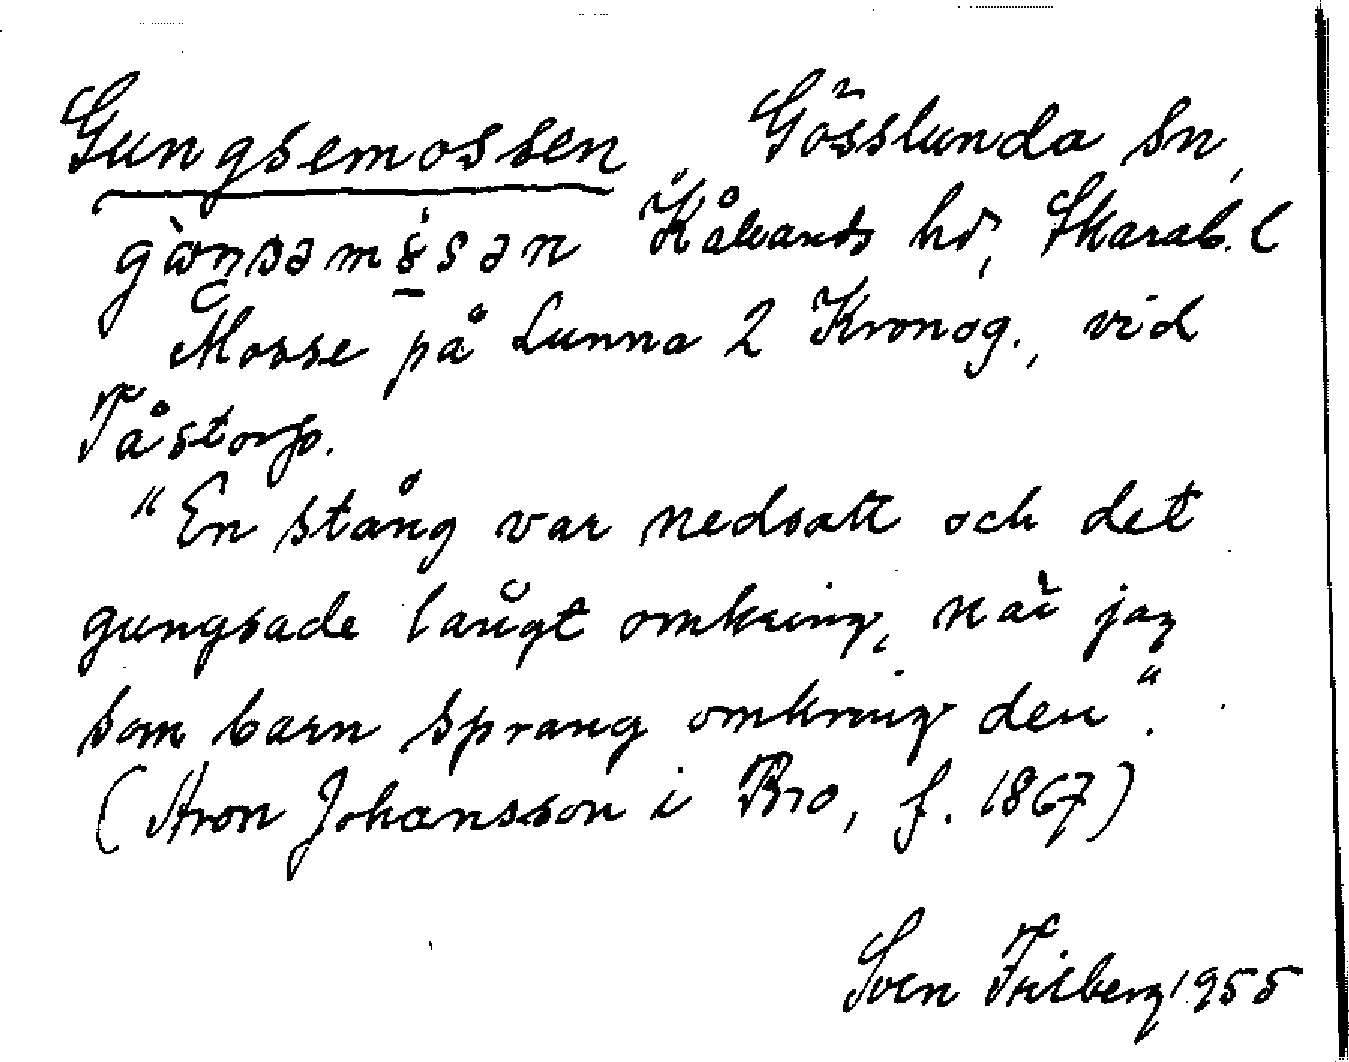 Gungsemossen Gösslunda sn,
Kållands hd, Skarab. l
Mosse på Lunna 2 Kronog., vid
Tåstorp.
"En stång var nedsatt och det
gungsade långt omkring, när jag
som barn sprang omkring den".
(Aron Johansson i Bro, f. 1867)
Sven Friberg 1955